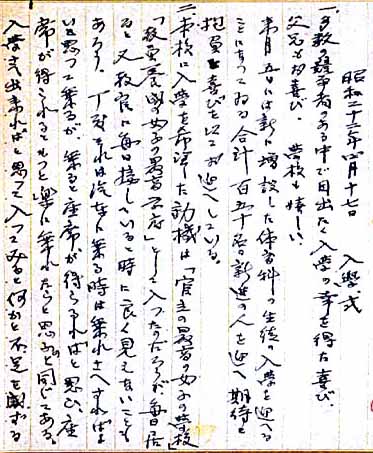 昭和二十三年四月十七日 入學式
一、多数の競爭者のある中で目出たく入學の幸を得た喜び、
父兄も喜び、学校も嬉しい、
来月五日には新に増設した体育科の生徒の入學を迎へる
ことになってゐる合計百五十名の新進の人を迎へ期待と
喜びを以てお迎へしている。
二、本校に入學を希望した動機は「官立の最高の女子の学校」
「教員養成の女子最高学府」として入ったのだろうが、毎日居
ると又教官に毎日接していると時に良く見えないことも
あろう、丁度それは汽車に乗る時は乗れさへすればよ
いと思って乗るが、乗ると座席が得られればと思ひ、座
席が得られるともっと楽に乗れたらと思ふと同じである、
入學出来ればと思って入ってみると何かと不足を感ずる